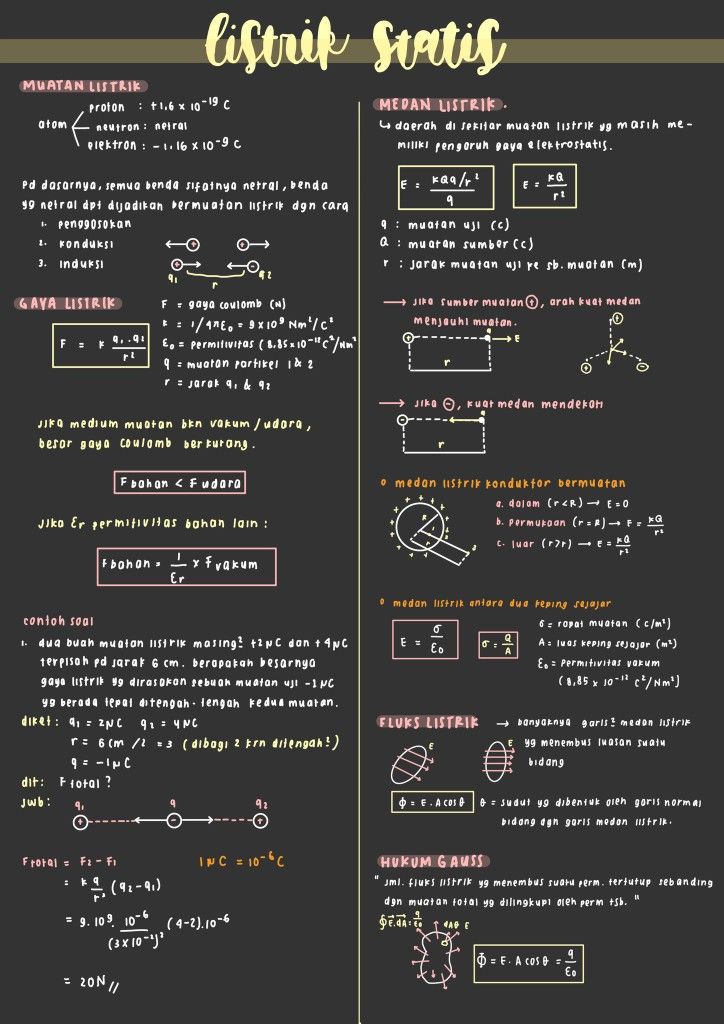 listrik statis
MUATAN LISTRIK
atom
proton : +1,6 x 10⁻¹⁹ C
neutron : netral
elektron : -1,16 x 10⁻⁹ C
Pd dasarnya, semua benda sifatnya netral, benda
yg netral dpt dijadikan bermuatan listrik dgn cara
1. penggosokan
2. konduksi
3. induksi
+ +
+ -
q₁ r q₂
GAYA LISTRIK
F = k q₁.q₂/r²
F = gaya coulomb (N)
k = 1/4πε₀ = 9x10⁹ Nm²/C²
ε₀ = permitivitas (8,85x10⁻¹² C²/Nm²
q = muatan partikel 1 & 2
r = jarak q₁ & q₂
Jika medium muatan bkn vakum/udara,
besar gaya coulomb berkurang.
F bahan < F udara
Jika εr permitivitas bahan lain :
F bahan = 1/εr x F vakum
contoh soal
1. dua buah muatan listrik masing² +2NC dan +4NC
terpisah pd jarak 6 cm. berapakah besarnya
gaya listrik yg dirasakan sebuah muatan uji -1NC
yg berada tepat ditengah-tengah kedua muatan.
diket : q₁ = 2NC q₂ = 4NC
r = 6cm /2 = 3 (dibagi 2 krn ditengah²)
q = -1NC
dit : F total ?
jwb :
q₁ q q₂
+ - +
F total = F₂ - F₁
1NC = 10⁻⁶ C
= k q/r² (q₂-q₁)
= 9.10⁹. 10⁻⁶/(3x10⁻²)² (4-2).10⁻⁶
= 20N //
MEDAN LISTRIK.
↳ daerah di sekitar muatan listrik yg masih me-
miliki pengaruh gaya elektrostatis.
E = kQq/r²/q
E = kQ/r²
q : muatan uji (c)
Q : muatan sumber (c)
r : jarak muatan uji ke sb. muatan (m)
→ Jika sumber muatan ⊕, arah kuat medan
menjauhi muatan.
+ q E
r
+ + -
→ Jika ⊖, kuat medan mendekati
- q
r
o medan listrik konduktor bermuatan
a. dalam (r<R) → E=0
b. Permukaan (r=R) → E = kQ/r²
c. luar (r>r) → E = kQ/r²
o medan listrik antara dua keping sejajar
E = σ/ε₀
σ = Q/A
σ = rapat muatan (c/m²)
A = luas keping sejajar (m²)
ε₀ = Permitivitas vakum
(8,85 x 10⁻¹² C²/Nm²)
FLUKS LISTRIK → banyaknya garis² medan listrik
yg menembus luasan suatu
bidang
E E
ϕ = E.A cosθ
θ = sudut yg dibentuk oleh garis normal
bidang dgn garis medan listrik.
HUKUM GAUSS
" jml. fluks listrik yg menembus suatu perm. tertutup sebanding
dgn muatan total yg dilingkupi oleh perm tsb. "
∮E.dA = q/ε₀
dA θ E
Φ = E.A cosθ = q/ε₀